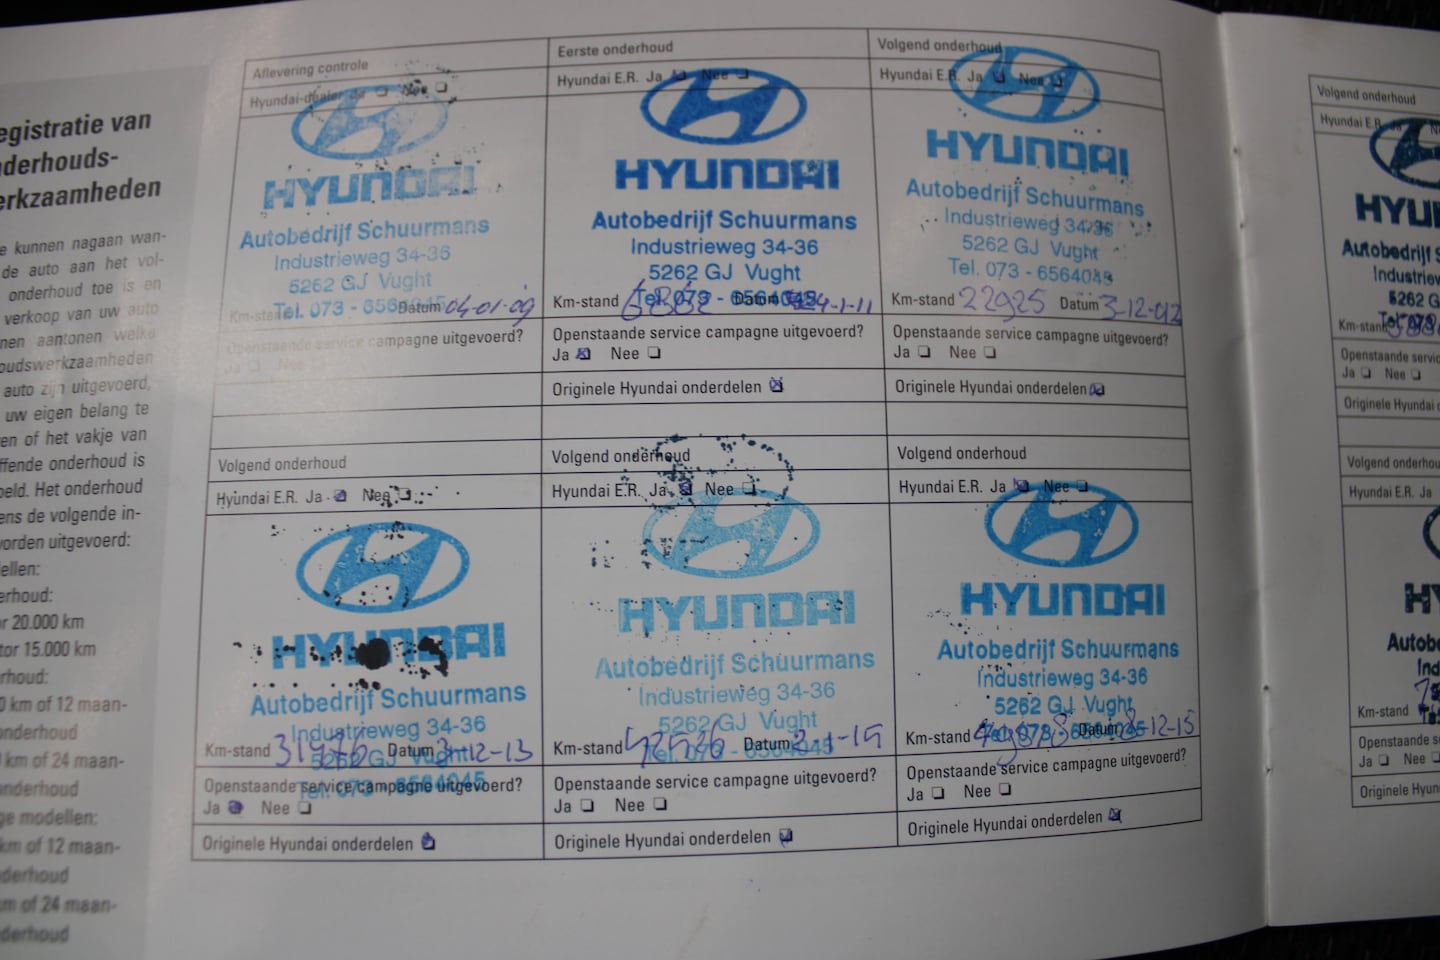 egistratie van
nderhouds-
erkzaamheden
e kunnen nagaan wan-
de auto aan het vol-
onderhoud toe is en
verkoop van uw auto
nen aantonen welke
oudswerkzaamheden
auto zijn uitgevoerd,
uw eigen belang te
en of het vakje van
ffende onderhoud is
peld. Het onderhoud
ens de volgende in-
vorden uitgevoerd:
ellen:
erhoud:
r 20.000 km
tor 15.000 km
rhoud:
0 km of 12 maan-
onderhoud
km of 24 maan-
onderhoud
ge modellen:
km of 12 maan-
derhoud
km of 24 maan-
derhoud
Aflevering controle
Hyundai-dealer Ja Nee
HYUNDAI
Autobedrijf Schuurmans
Industrieweg 34-36
5262 GJ Vught
Tel. 073 - 6564045
Km-stand Datum 04-01-09
Openstaande service campagne uitgevoerd?
Ja Nee
Eerste onderhoud
Hyundai E.R. Ja Nee
HYUNDAI
Autobedrijf Schuurmans
Industrieweg 34-36
5262 GJ Vught
Tel. 073 - 6564045
Km-stand Datum 24-1-11
Openstaande service campagne uitgevoerd?
Ja Nee
Originele Hyundai onderdelen
Volgend onderhoud
Hyundai E.R. Ja Nee
HYUNDAI
Autobedrijf Schuurmans
Industrieweg 34-36
5262 GJ Vught
Tel. 073 - 6564045
Km-stand 22925 Datum 3-12-012
Openstaande service campagne uitgevoerd?
Ja Nee
Originele Hyundai onderdelen
Volgend onderhoud
Hyundai E.R. Ja Nee
HYUNDAI
Autobedrijf Schuurmans
Industrieweg 34-36
5262 GJ Vught
Tel. 073 - 6564045
Km-stand Datum 3-12-13
Openstaande service campagne uitgevoerd?
Ja Nee
Originele Hyundai onderdelen
Volgend onderhoud
Hyundai E.R. Ja Nee
HYUNDAI
Autobedrijf Schuurmans
Industrieweg 34-36
5262 GJ Vught
Tel. 073 - 6564045
Km-stand Datum
Openstaande service campagne uitgevoerd?
Ja Nee
Originele Hyundai onderdelen
Volgend onderhoud
Hyundai E.R. Ja Nee
HYUNDAI
Autobedrijf Schuurmans
Industrieweg 34-36
5262 GJ Vught
Tel. 073 - 6564045
Km-stand Datum 8-12-15
Openstaande service campagne uitgevoerd?
Ja Nee
Originele Hyundai onderdelen
Volgend onderhoud
Hyundai E.R. Ja
HYU
Autobedrijf S
Industriew
5262 G
Km-stand
Openstaande servic
Ja Nee
Originele Hyundai o
Volgend onderhou
Hyundai E.R. Ja
HY
Autobe
Ind
Km-stand
Openstaande s
Ja Nee
Originele Hyun